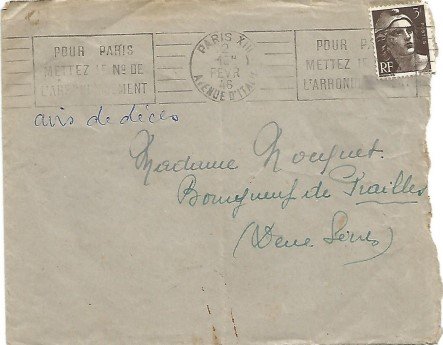 POUR PARIS
METTEZ LE N° DE
L'ARRONDISSEMENT
PARIS XIII
2
FEVR
46
AVENUE D'ITALIE
POUR PA
METTEZ LE N
L'ARRONDI
3F
RF
avis de décès
Madame Nouquet.
de Prailles
(Deux Sèvres)